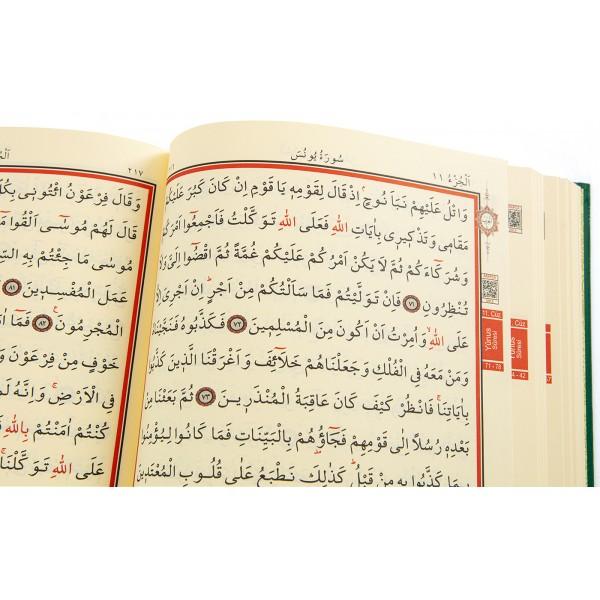 اَلْجُزْءُ ١١
سُورَةُ يُونُسَ
وَاتْلُ عَلَيْهِمْ نَبَاَ نُوحٍۢ اِذْ قَالَ لِقَوْمِه۪ يَا قَوْمِ اِنْ كَانَ كَبُرَ عَلَيْكُمْ
مَقَام۪ي وَتَذْك۪ير۪ي بِاٰيَاتِ اللّٰهِ فَعَلَى اللّٰهِ تَوَكَّلْتُ فَاَجْمِعُٓوا اَمْرَكُمْ
وَشُرَكَٓاءَكُمْ ثُمَّ لَا يَكُنْ اَمْرُكُمْ عَلَيْكُمْ غُمَّةً ثُمَّ اقْضُٓوا اِلَيَّ وَلَا
تُنْظِرُونِ ٧١ فَاِنْ تَوَلَّيْتُمْ فَمَا سَاَلْتُكُمْ مِنْ اَجْرٍۜ اِنْ اَجْرِيَ اِلَّا
عَلَى اللّٰهِۙ وَاُمِرْتُ اَنْ اَكُونَ مِنَ الْمُسْلِم۪ينَ ٧٢ فَكَذَّبُوهُ فَنَجَّيْنَاهُ
وَمَنْ مَعَهُ فِي الْفُلْكِ وَجَعَلْنَاهُمْ خَلَٓائِفَ وَاَغْرَقْنَا الَّذ۪ينَ كَذَّبُوا
بِاٰيَاتِنَاۚ فَانْظُرْ كَيْفَ كَانَ عَاقِبَةُ الْمُنْذَر۪ينَ ٧٣ ثُمَّ بَعَثْنَا مِنْ
بَعْدِه۪ رُسُلًا اِلٰى قَوْمِهِمْ فَجَٓاؤُ۫هُمْ بِالْبَيِّنَاتِ فَمَا كَانُوا لِيُؤْمِنُوا
بِمَا كَذَّبُوا بِه۪ مِنْ قَبْلُۜ كَذٰلِكَ نَطْبَعُ عَلٰى قُلُوبِ الْمُعْتَد۪ينَ
11. Cüz
Yûnus
Sûresi
71 - 78
Cüz
Yûnus
Sûresi
- 42
٢١٧
وَقَالَ فِرْعَوْنُ ائْتُون۪ي بِكُلِّ
قَالَ لَهُمْ مُوسٰٓى اَلْقُوا مَٓا
مُوسٰى مَا جِئْتُمْ بِهِ
عَمَلَ الْمُفْسِد۪ينَ ٨١
الْمُجْرِمُونَ ٨٢ فَمَٓا
خَوْفٍ مِنْ فِرْعَوْنَ
فِي الْاَرْضِۚ وَاِنَّهُ
كُنْتُمْ اٰمَنْتُمْ بِاللّٰهِ
عَلَى اللّٰهِ تَوَكَّلْنَاۚ